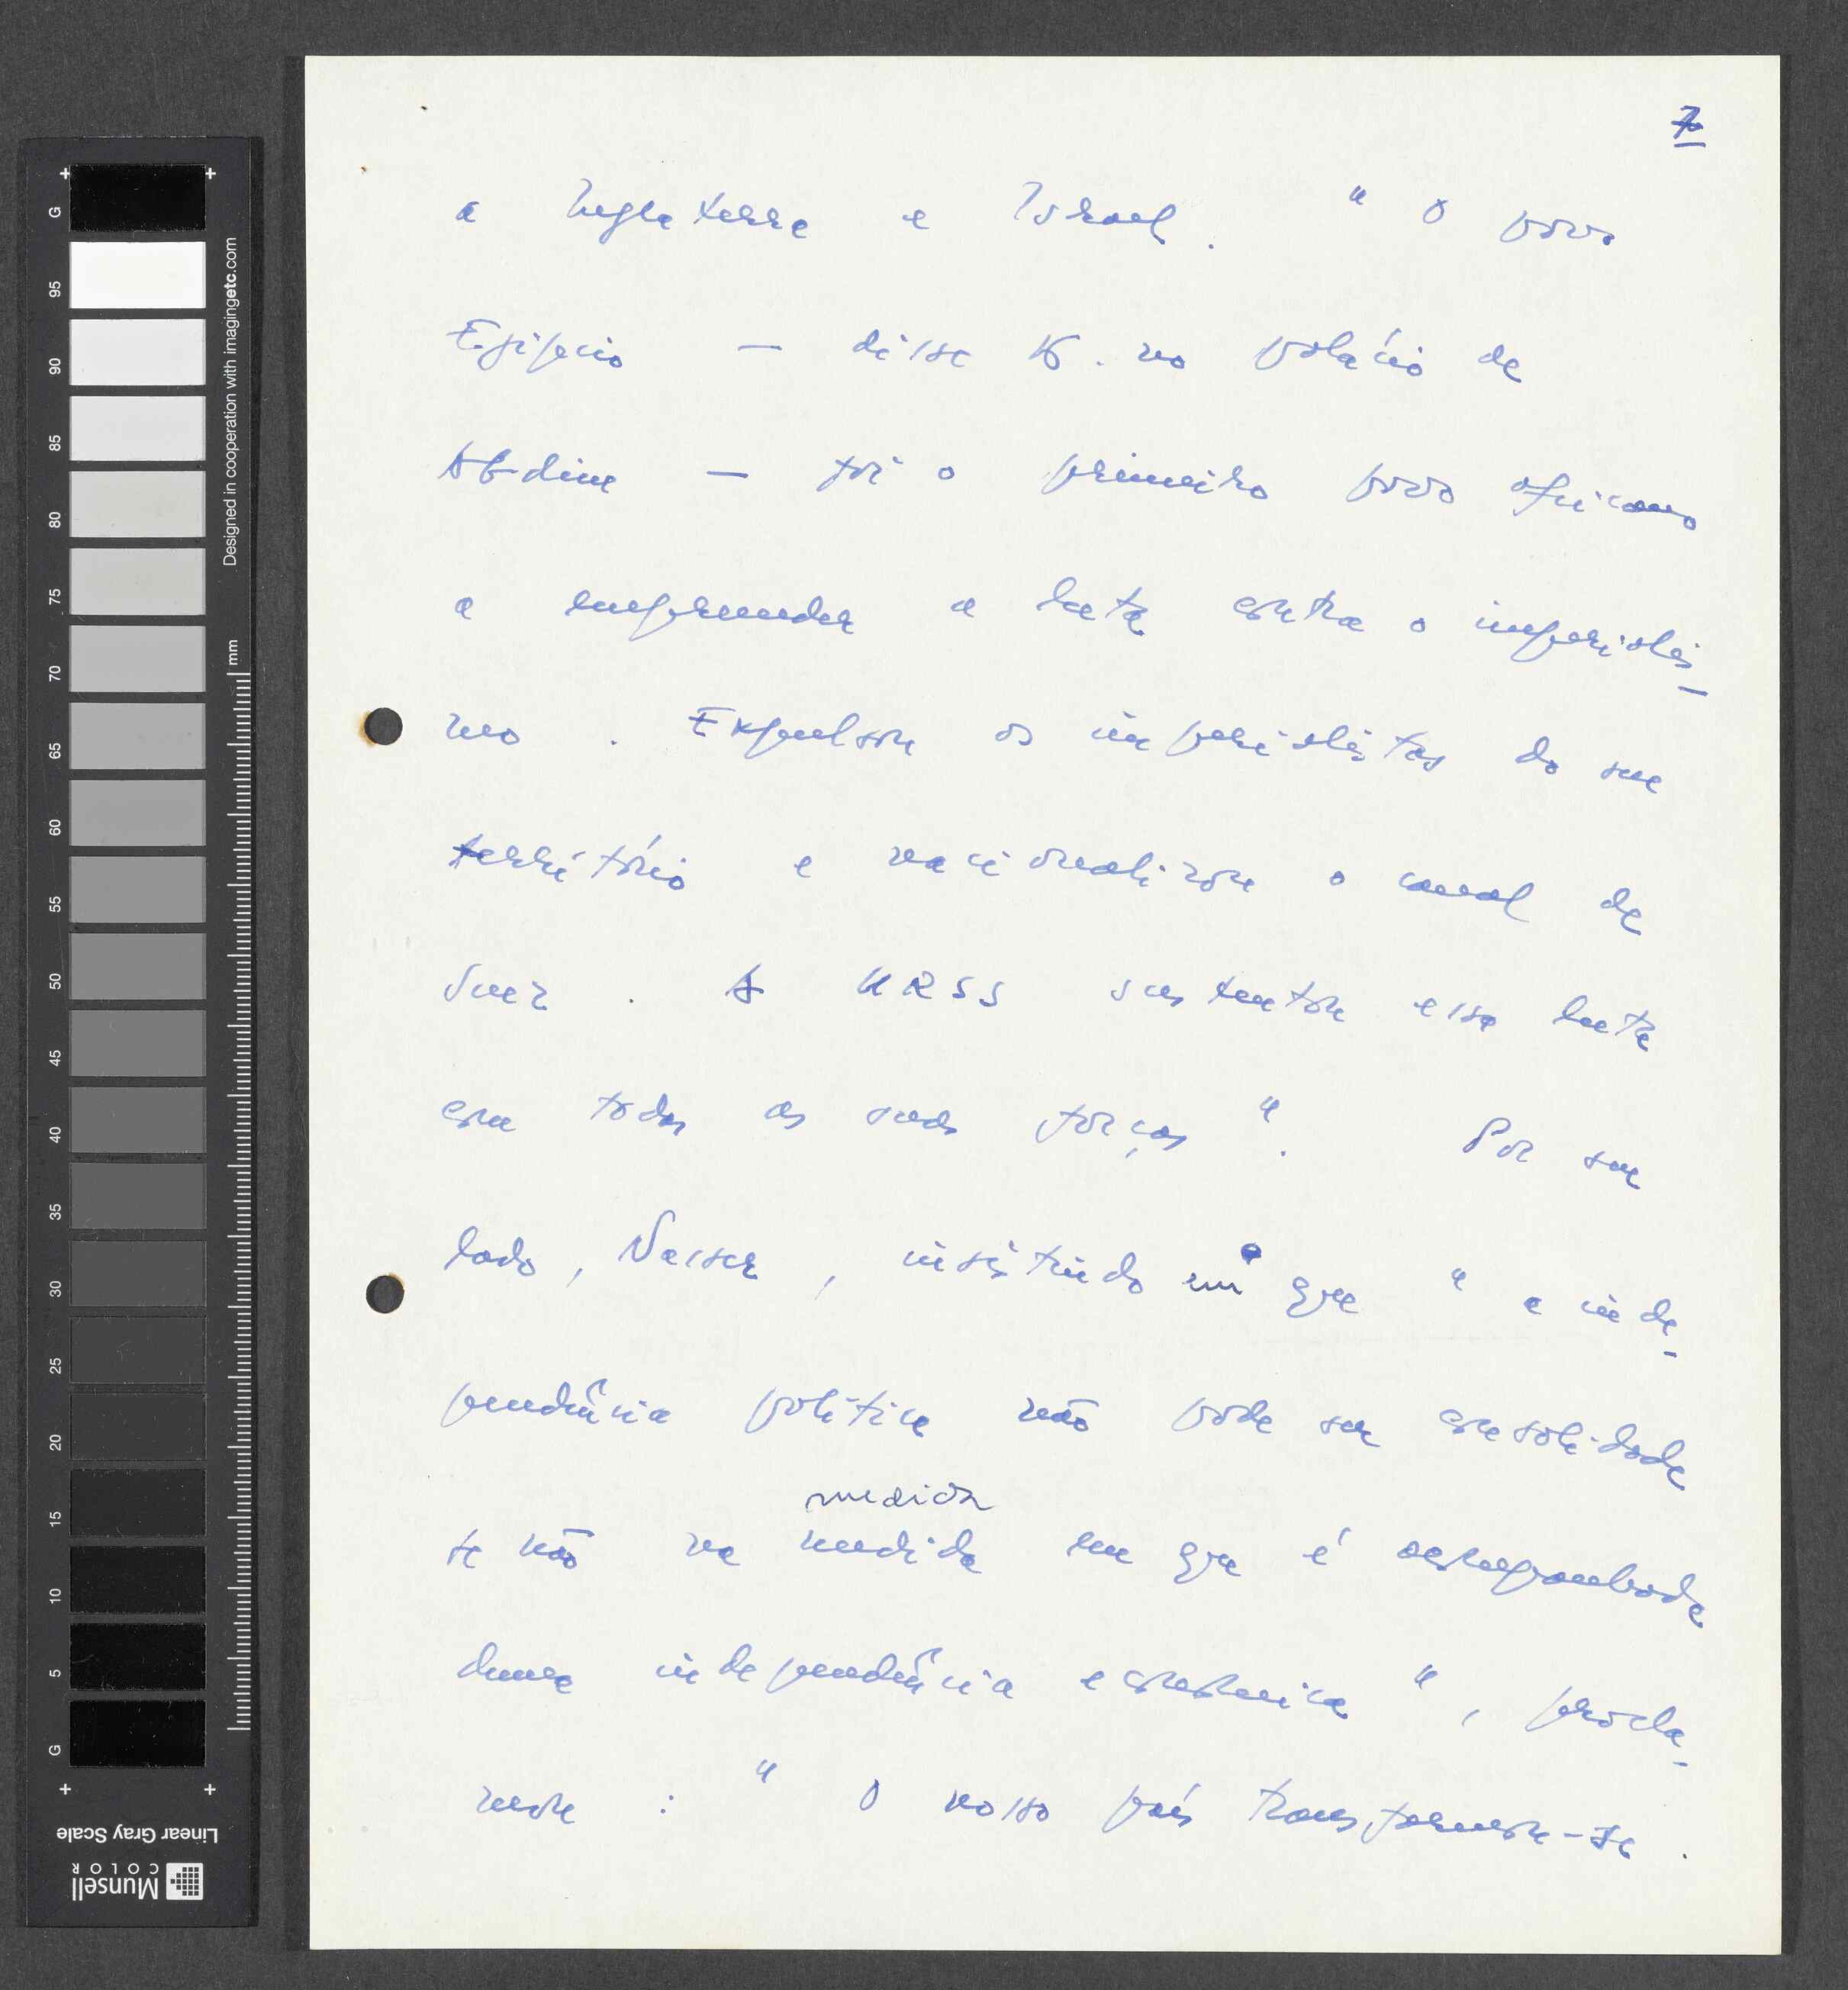 7
a Inglaterra e Israel. " O povo
Egípcio — disse K. no palácio de
Abdine — foi o primeiro povo africano
a empreender a luta contra o imperialis-
mo. Expulsou os imperialistas do seu
território e nacionalizou o canal de
Suez. A URSS sustentou essa luta
com todas as suas forças ". Por seu
lado, Nasser, insistindo em que " a inde-
pendência política não pode ser consolidada
medida
se não na medida em que é acompanhada
duma independência económica ", procla-
mou : " O nosso país transformou-se .
G
95
90
85
80
75
70
65
60
55
50
45
40
35
30
25
20
15
10
5
G
Designed in cooperation with imagingetc.com
mm
Linear Gray Scale
Munsell
COLOR